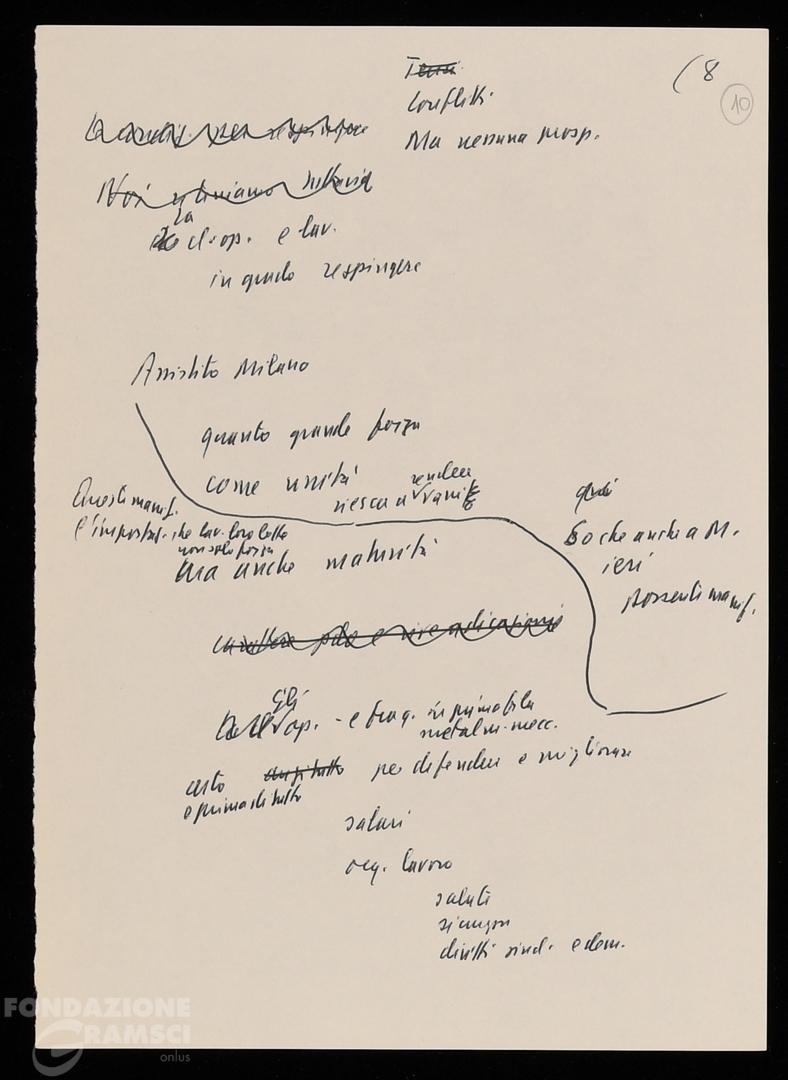 (8
10
Conflitti
Ma nessuna prosp.
respingere
Noi tuttavia
la
cl. op. e lav.
in grado respingere
Assistito Milano
quanto grande forza
come unità riesca a rendere
Questi manif.
e impostaz. che lav. loro lotte
non solo forza
ma anche maturità
qui
So che anche a M.
ieri
possenti manif.
e rivendicazioni
Gli
op. - e brac. in prima fila
metalm-mecc.
certo per difendere e migliorare
e prima di tutto
salari
org. lavoro
salute
diritti sind. e dem.
FONDAZIONE
GRAMSCI
onlus